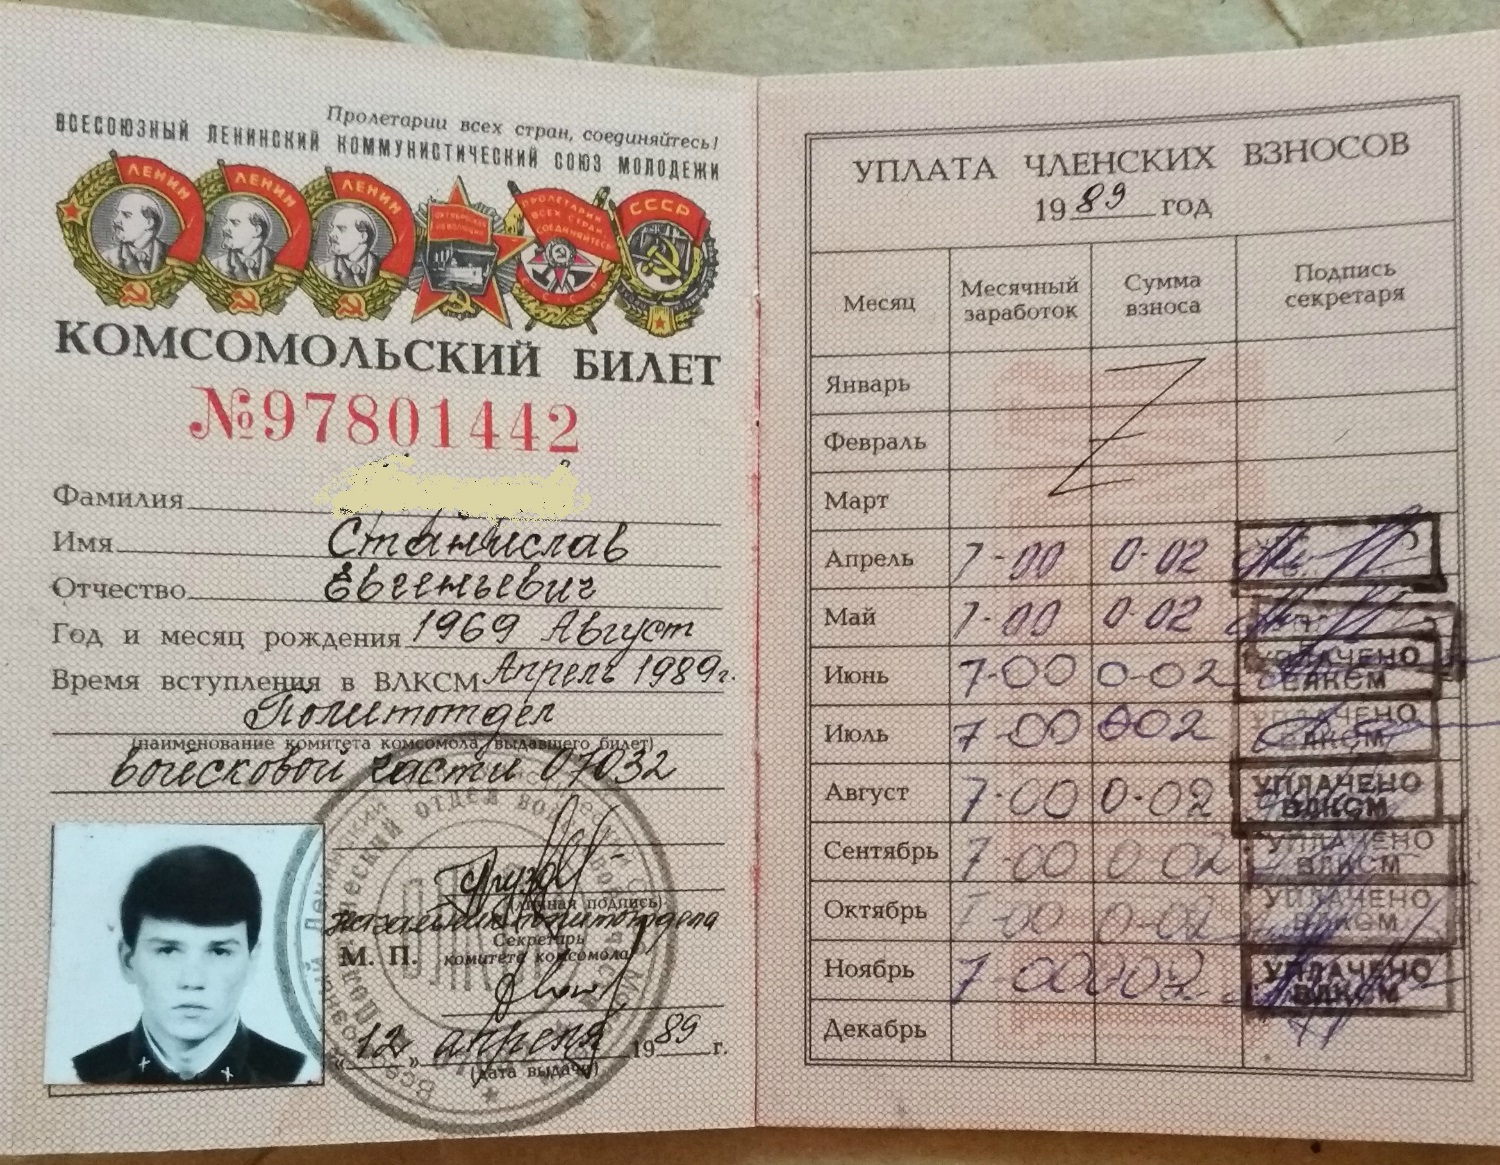 Пролетарии всех стран, соединяйтесь!
ВСЕСОЮЗНЫЙ ЛЕНИНСКИЙ КОММУНИСТИЧЕСКИЙ СОЮЗ МОЛОДЕЖИ
ЛЕНИН ЛЕНИН ЛЕНИН ОКТЯБРЬСКАЯ РЕВОЛЮЦИЯ ПРОЛЕТАРИИ ВСЕХ СТРАН СОЕДИНЯЙТЕСЬ СССР СССР
КОМСОМОЛЬСКИЙ БИЛЕТ
№97801442
Фамилия
Имя Станислав
Отчество Евгеньевич
Год и месяц рождения 1969 Август
Время вступления в ВЛКСМ Апрель 1989г.
Политотдел
(наименование комитета комсомола, выдавшего билет)
войсковой части 07032
(личная подпись)
начальник политотдела
М. П. Секретарь
комитета комсомола
«12» апреля 1989 г.
(дата выдачи)
УПЛАТА ЧЛЕНСКИХ ВЗНОСОВ
1989 год
Месяц Месячный заработок Сумма взноса Подпись секретаря
Январь
Февраль
Март
Апрель 7-00 0-02
Май 7-00 0-02
Июнь 7-00 0-02 УПЛАЧЕНО ВЛКСМ
Июль 7-00 002 УПЛАЧЕНО ВЛКСМ
Август 7-00 0-02 УПЛАЧЕНО ВЛКСМ
Сентябрь 7-00 0-02 УПЛАЧЕНО ВЛКСМ
Октябрь 7-00 0-02 УПЛАЧЕНО ВЛКСМ
Ноябрь 7-00 002 УПЛАЧЕНО ВЛКСМ
Декабрь